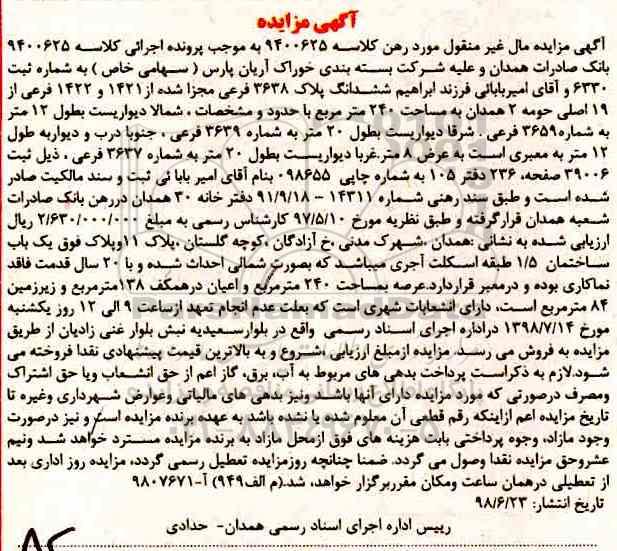 آگهی مزایده
آگهی مزایده مال غیر منقول مورد رهن کلاسه ۹۴۰۰۶۲۵ به موجب پرونده اجرائی کلاسه ۹۴۰۰۶۲۵
بانک صادرات همدان و علیه شرکت بسته بندی خوراک آریان پارس ( سهامی خاص ) به شماره ثبت
۶۳۳۰ و آقای امیربابائی فرزند ابراهیم ششدانگ پلاک ۳۶۳۸ فرعی مجزا شده از ۱۴۲۱ و ۱۴۲۲ فرعی از
۱۹ اصلی حومه ۲ همدان به مساحت ۲۴۰ متر مربع با حدود و مشخصات ، شمالا دیواریست بطول ۱۲ متر
به شماره۳۶۵۹ فرعی . شرقا دیواریست بطول ۲۰ متر به شماره ۳۶۳۹ فرعی ، جنوبا درب و دیواربه طول
۱۲ متر به معبری است به عرض ۸ متر.غربا دیواریست بطول ۲۰ متر به شماره ۳۶۳۷ فرعی ، ذیل ثبت
۳۹۰۰۶ صفحه، ۲۳۶ دفتر ۱۰۵ به شماره چاپی ۰۹۸۶۵۵ بنام آقای امیر بابا ئی ثبت و سند مالکیت صادر
شده است و طبق سند رهنی شماره ۱۴۳۱۱ - ۹۱/۹/۱۸ دفتر خانه ۳۰ همدان دررهن بانک صادرات
شعبه همدان قرارگرفته و طبق نظریه مورخ ۹۷/۵/۱۰ کارشناس رسمی به مبلغ ۲/۶۳۰/۰۰۰/۰۰۰ ریال
ارزیابی شده به نشانی :همدان ،شهرک مدنی ،خ آزادگان ،کوچه گلستان ،پلاک ۱۱وپلاک فوق یک باب
ساختمان ۱/۵ طبقه اسکلت آجری میباشد که بصورت شمالی احداث شده و با ۲۰ سال قدمت فاقد
نماکاری بوده و درمعبر قراردارد.عرصه بمساحت ۲۴۰ مترمربع و اعیان درهمکف ۱۳۸مترمربع و زیرزمین
۸۴ مترمربع است، دارای انشعابات شهری است که بعلت عدم انجام تعهد ازساعت ۹ الی ۱۲ روز یکشنبه
مورخ ۱۳۹۸/۷/۱۴ دراداره اجرای اسناد رسمی واقع در بلوارسعیدیه نبش بلوار غنی زادیان از طریق
مزایده به فروش می رسد. مزایده ازمبلغ ارزیابی ،شروع و به بالاترین قیمت پیشنهادی نقدا فروخته می
شود.لازم به ذکراست پرداخت بدهی های مربوط به آب، برق، گاز اعم از حق انشعاب ویا حق اشتراک
ومصرف درصورتی که مورد مزایده دارای آنها باشد ونیز بدهی های مالیاتی وعوارض شهرداری وغیره تا
تاریخ مزایده اعم ازاینکه رقم قطعی آن معلوم شده یا نشده باشد به عهده برنده مزایده است و نیز درصورت
وجود مازاد، وجوه پرداختی بابت هزینه های فوق ازمحل مازاد به برنده مزایده مسترد خواهد شد ونیم
عشروحق مزایده نقدا وصول می گردد. ضمنا چنانچه روزمزایده تعطیل رسمی گردد، مزایده روز اداری بعد
از تعطیلی درهمان ساعت ومکان مقرربرگزار خواهد، شد.(م الف۹۴۹) آ-۹۸۰۷۶۷۱
تاریخ انتشار: ۹۸/۶/۲۳
رییس اداره اجرای اسناد رسمی همدان- حدادی